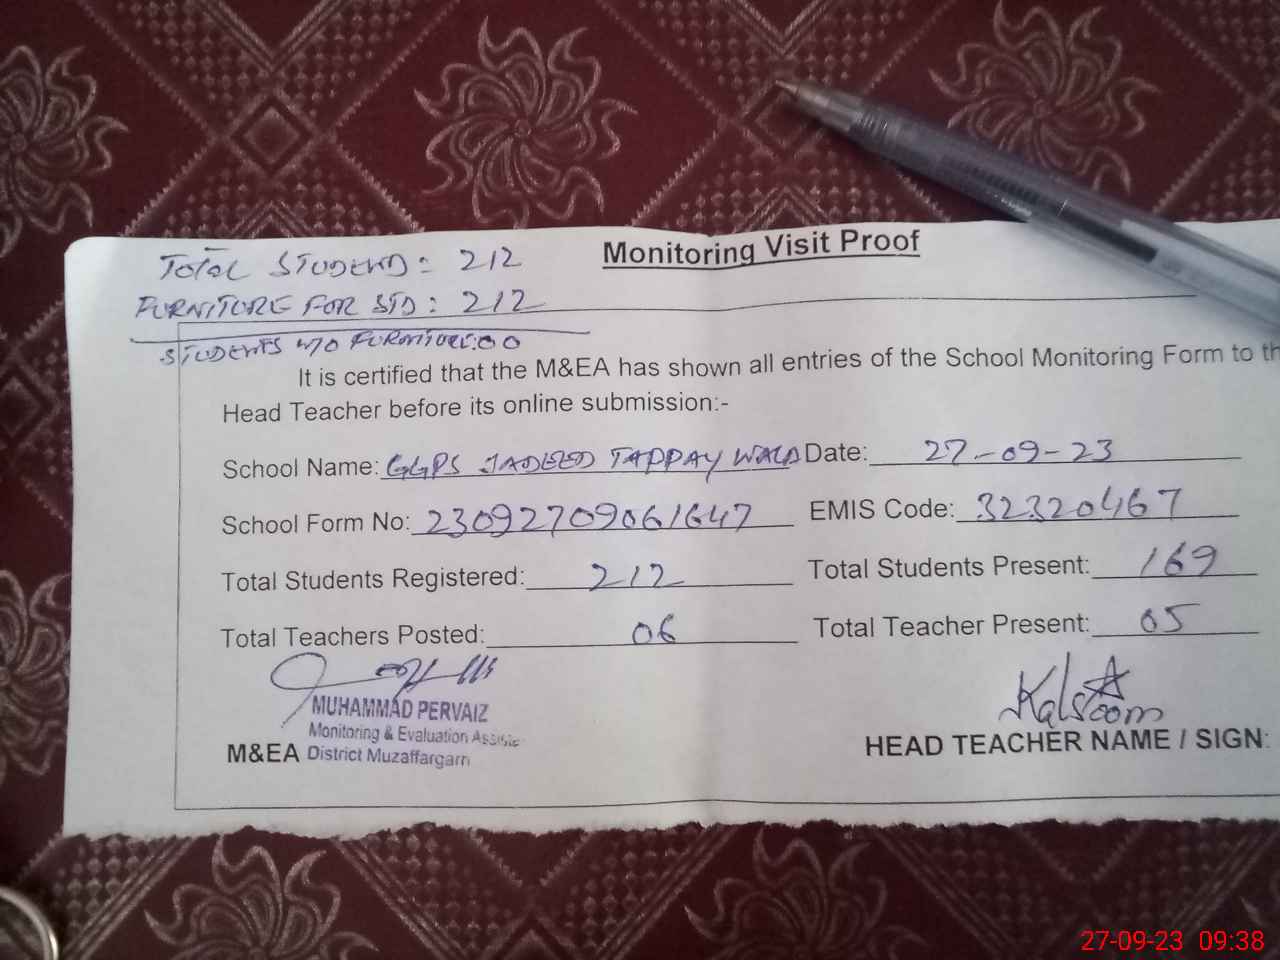 TOTAL STUDENTS: 212
FURNITURE FOR STD: 212
STUDENTS W/O FURNITURE: 00
Monitoring Visit Proof
It is certified that the M&EA has shown all entries of the School Monitoring Form to th
Head Teacher before its online submission:-
School Name: GGPS JADEED TAPPAY WALA Date: 27-09-23
School Form No: 23092709061647 EMIS Code: 32320467
Total Students Registered: 212 Total Students Present: 169
Total Teachers Posted: 06 Total Teacher Present: 05
MUHAMMAD PERVAIZ
Monitoring & Evaluation Assista
M&EA District Muzaffargarh
Kalsoom
HEAD TEACHER NAME / SIGN:
27-09-23 09:38